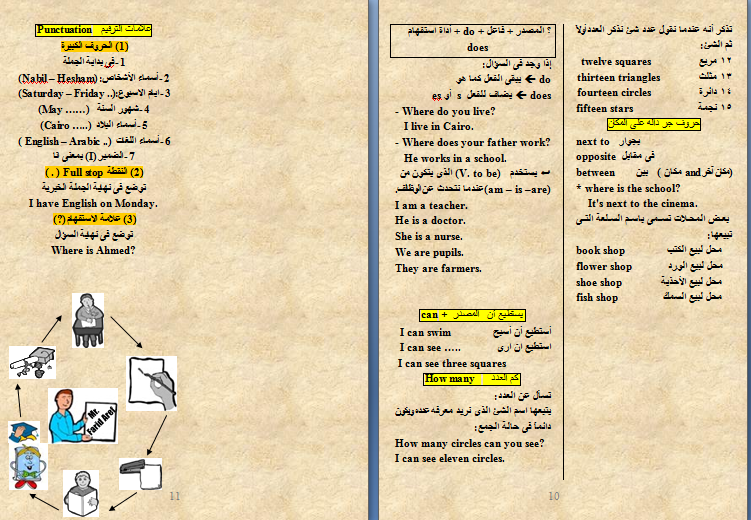 تذكر أنه عندما نقول عدد شئ نذكر العدد أولاً
ثم الشئ:
twelve squares ١٢ مربع
thirteen triangles ١٣ مثلث
fourteen circles ١٤ دائرة
fifteen stars ١٥ نجمة
حروف جر داله على المكان
next to بجوار
opposite فى مقابل
between بين (مكان and مكان آخر)
* where is the school?
It's next to the cinema.
بعض المحلات تسمى باسم السلعة التى
تبيعها:
book shop محل لبيع الكتب
flower shop محل لبيع الورد
shoe shop محل لبيع الأحذية
fish shop محل لبيع السمك
؟ المصدر + فاعل + do + أداة استفهام
does
إذا وجد فى السؤال:
do ← يبقى الفعل كما هو
does ← يضاف للفعل s أو es
- Where do you live?
I live in Cairo.
- Where does your father work?
He works in a school.
يستخدم (V. to be) الذى يتكون من
(am – is –are) عندما نتحدث عن الوظائف.
I am a teacher.
He is a doctor.
She is a nurse.
We are pupils.
They are farmers.
can + يستطيع أن المصدر
I can swim أستطيع أن أسبح
I can see ….. استطيع ان ارى
I can see three squares
How many كم العدد
تسأل عن العدد:
يتبعها اسم الشئ الذى نريد معرفه عدده ويكون
دائماً فى حالة الجمع:
How many circles can you see?
I can see eleven circles.
10
Punctuation علامات الترقيم
(1) الحروف الكبيرة
1- فى بداية الجملة
2- أسماء الأشخاص: (Nabil – Hesham)
3- ايام الاسبوع: (Saturday – Friday ..)
4- شهور السنة (May ……)
5- أسماء البلاد (Cairo …..)
6- أسماء اللغات (English – Arabic ..)
7- الضمير (I) بمعنى انا
(2) النقطة Full stop (.)
توضع فى نهاية الجملة الخبرية
I have English on Monday.
(3) علامة الاستفهام (?)
توضع فى نهاية السؤال
Where is Ahmed?
Mr.
Farid Aref
11